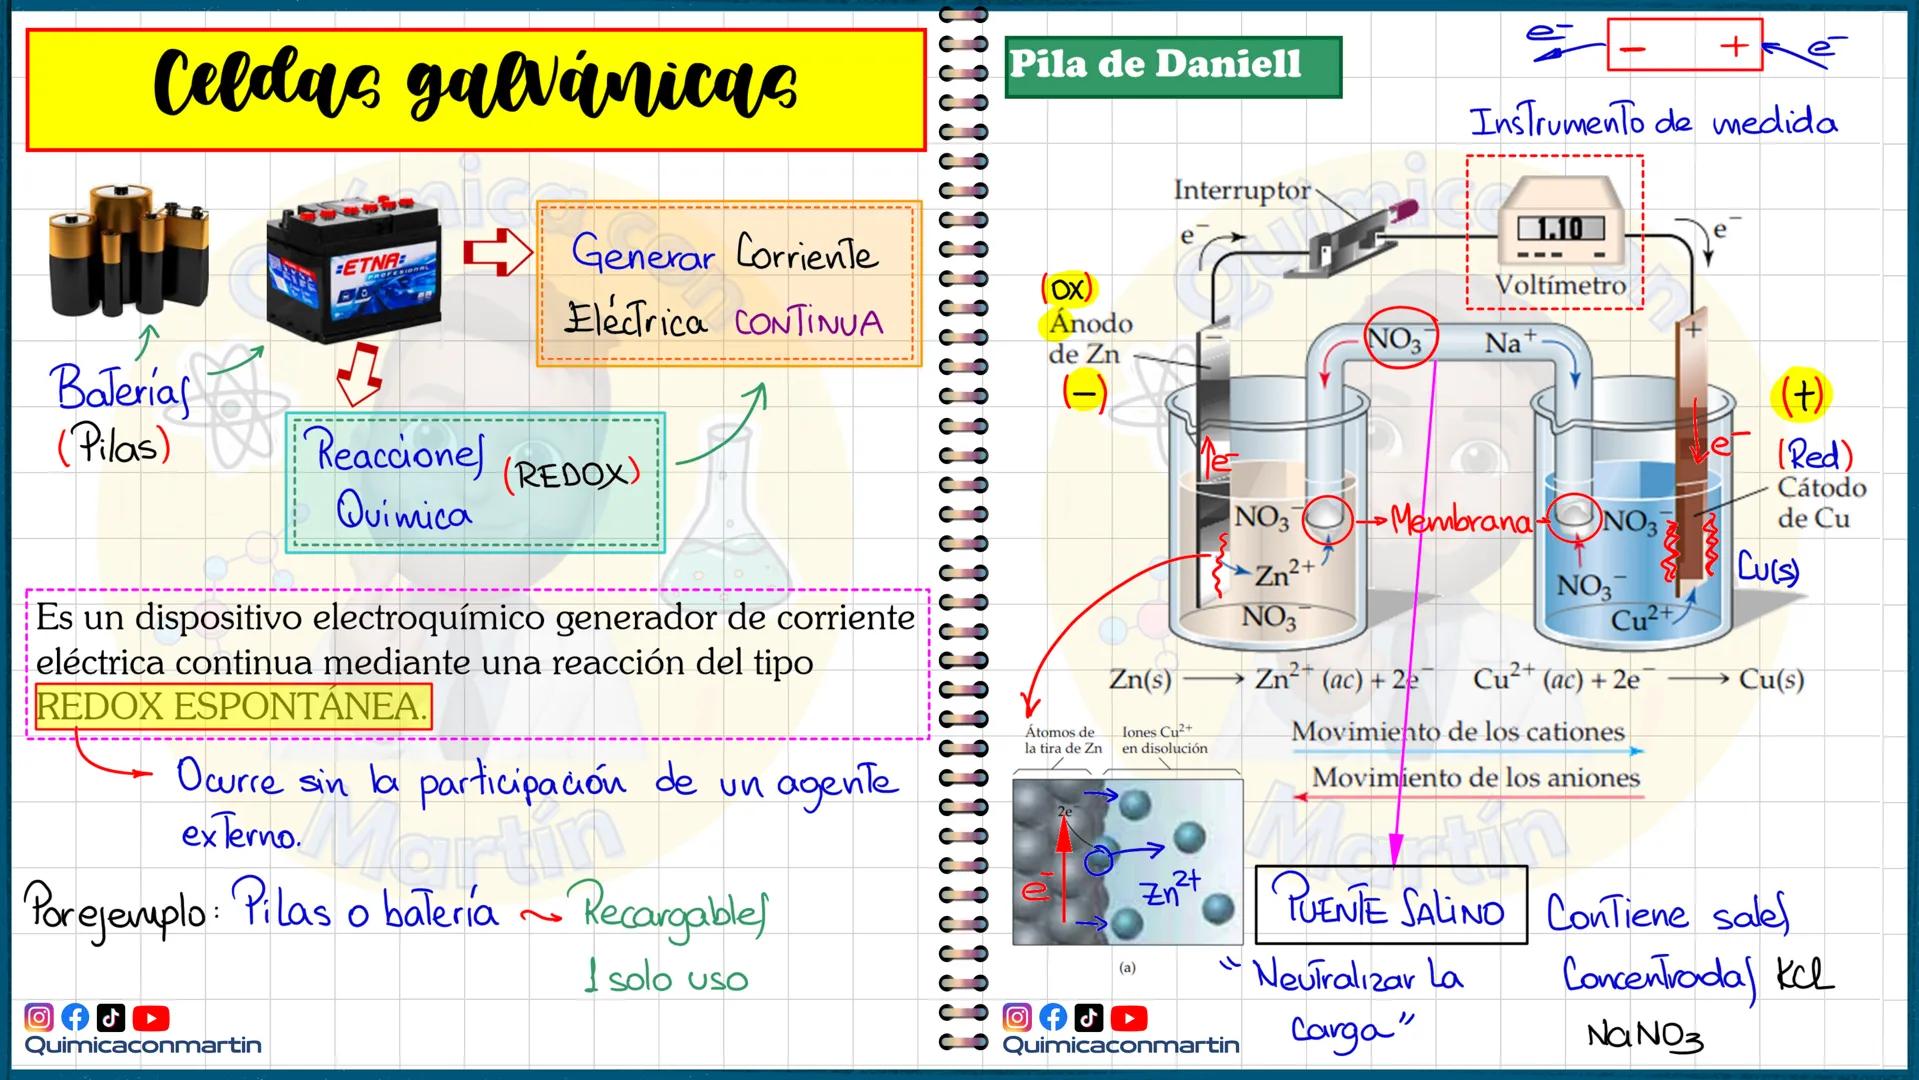 Celdas galvánicas
ETNA
PROFESIONAL
Generar Corriente
Eléctrica CONTINUA
Baterías
(Pilas)
Reacciones
Química
(REDOX)
Es un dispositivo electroquímico generador de corriente
eléctrica continua mediante una reacción del tipo
REDOX ESPONTÁNEA.
Ocurre sin la participación de un agente
externo.
Por ejemplo: Pilas o batería ~ Recargables
1 solo uso
Quimicaconmartin
Pila de Daniell
e⁻ − + e⁻
Instrumento de medida
Interruptor
e⁻
1.10
Voltímetro
e⁻
(OX)
Ánodo
de Zn
(−)
−
NO₃⁻ Na⁺
+
(+)
(Red)
Cátodo
de Cu
Cu(s)
e⁻
e⁻
NO₃⁻
Membrana
NO₃⁻
Zn²⁺
NO₃⁻
NO₃⁻
Cu²⁺
Zn(s) → Zn²⁺ (ac) + 2e⁻
Cu²⁺ (ac) + 2e⁻ → Cu(s)
Movimiento de los cationes
Movimiento de los aniones
Átomos de
la tira de Zn
Iones Cu²⁺
en disolución
2e⁻
e⁻
Zn²⁺
(a)
PUENTE SALINO
"Neutralizar la
carga"
Contiene sales
Concentradas KCl
NaNO₃
Quimicaconmartin
Química con
Martín
Química con
Martín